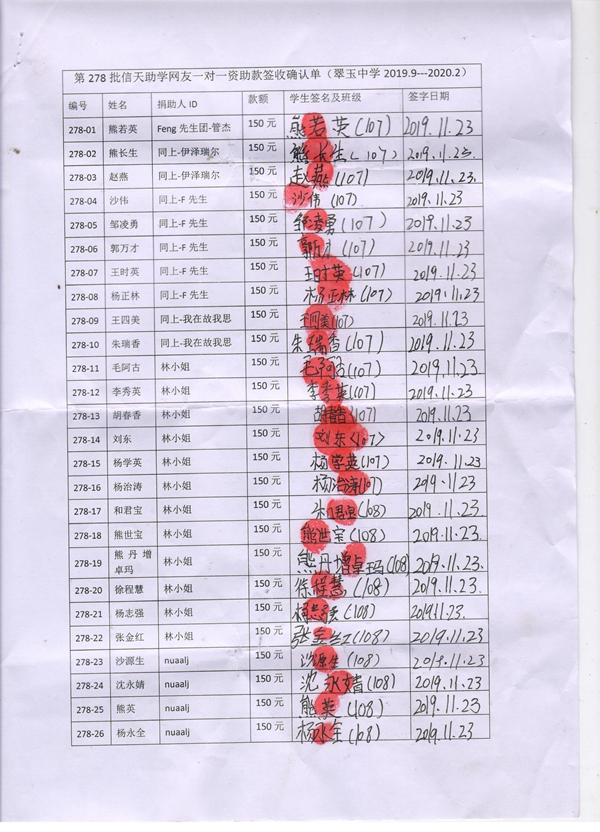 第 278 批信天助学网友一对一资助款签收确认单（翠玉中学 2019.9---2020.2）
编号 姓名 捐助人 ID 款额 学生签名及班级 签字日期
278-01 熊若英 Feng 先生团-管杰 150 元 熊若英(107) 2019.11.23
278-02 熊长生 同上-伊泽瑞尔 150 元 熊长生(107) 2019.11.23
278-03 赵燕 同上-伊泽瑞尔 150 元 赵燕(107) 2019.11.23
278-04 沙伟 同上-F 先生 150 元 沙伟(107) 2019.11.23
278-05 邹凌勇 同上-F 先生 150 元 邹凌勇(107) 2019.11.23
278-06 郭万才 同上-F 先生 150 元 郭万才(107) 2019.11.23
278-07 王时英 同上-F 先生 150 元 王时英(107) 2019.11.23
278-08 杨正林 同上-F 先生 150 元 杨正林(107) 2019.11.23
278-09 王四美 同上-我在故我思 150 元 王四美(107) 2019.11.23
278-10 朱瑞香 同上-我在故我思 150 元 朱瑞香(107) 2019.11.23
278-11 毛阿古 林小姐 150 元 (107) 2019.11.23
278-12 李秀英 林小姐 150 元 李秀英(107) 2019.11.23
278-13 胡春香 林小姐 150 元 胡春香(107) 2019.11.23
278-14 刘东 林小姐 150 元 刘东(107) 2019.11.23
278-15 杨学英 林小姐 150 元 杨学英(107) 2019.11.23
278-16 杨治涛 林小姐 150 元 杨治涛(107) 2019.11.23
278-17 和君宝 林小姐 150 元 和君宝(108) 2019.11.23
278-18 熊世宝 林小姐 150 元 熊世宝(108) 2019.11.23
278-19 熊丹增卓玛 林小姐 150 元 熊丹增卓玛(108) 2019.11.23
278-20 徐程慧 林小姐 150 元 徐程慧(108) 2019.11.23
278-21 杨志强 林小姐 150 元 杨志强(108) 2019.11.23.
278-22 张金红 林小姐 150 元 张金红(108) 2019.11.23
278-23 沙源生 nuaalj 150 元 沙源生(108) 2019.11.23
278-24 沈永婧 nuaalj 150 元 沈永婧(108) 2019.11.23
278-25 熊英 nuaalj 150 元 熊英(108) 2019.11.23
278-26 杨永全 nuaalj 150 元 杨永全(108) 2019.11.23